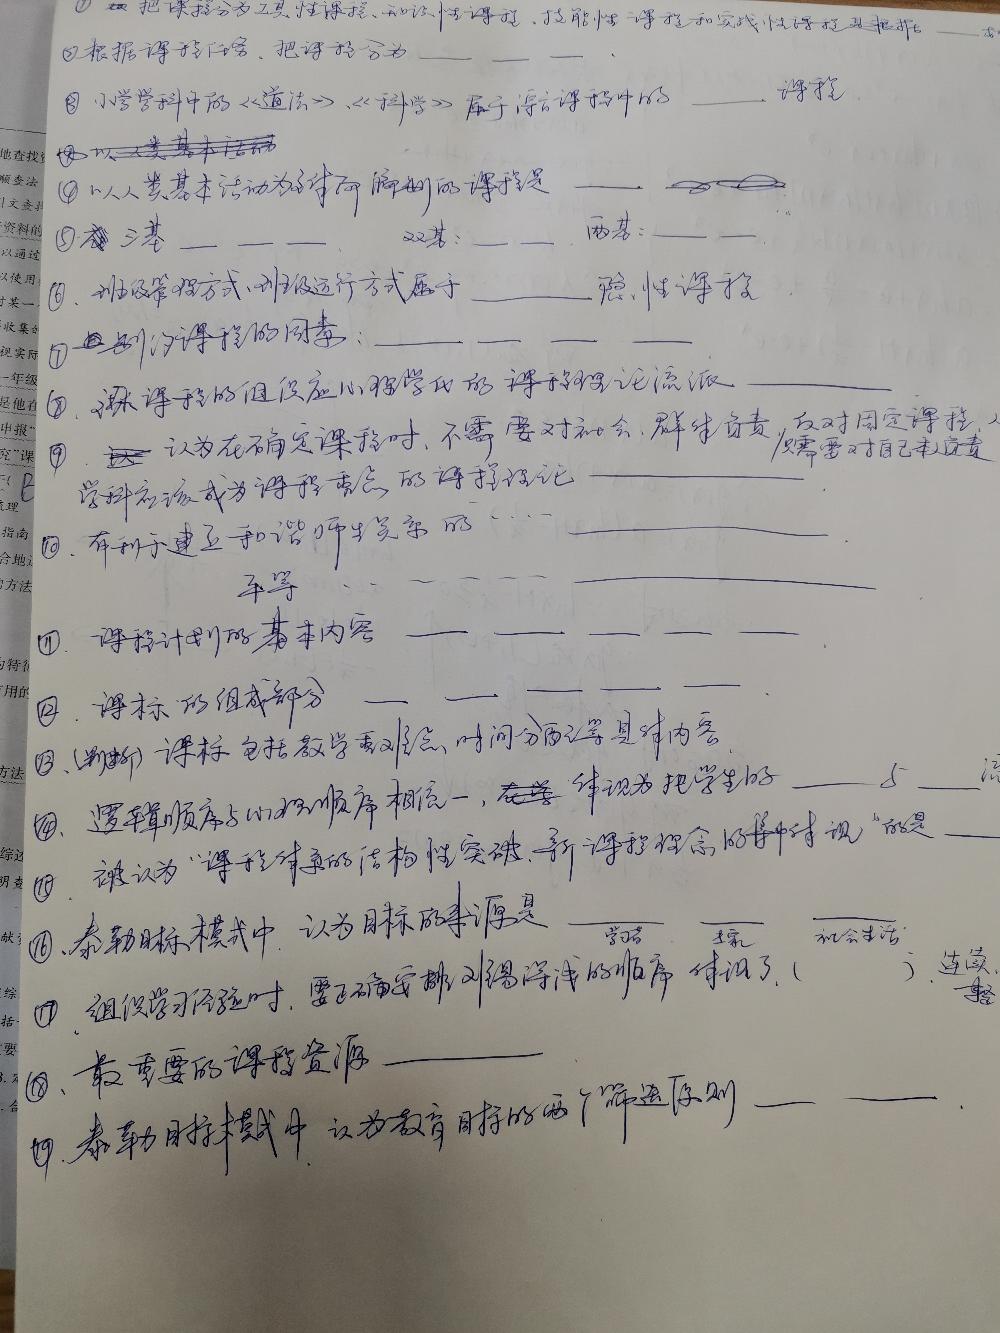 ① 把课程分为工具性课程、知识性课程、技能性课程和实践性课程是根据
② 根据课程任务，把课程分为
③ 小学学科中的《道法》、《科学》属于综合课程中的 课程
④ 以人类基本活动为主体而编制的课程是
⑤ 三基 双基： 两基：
⑥ 班级管理方式、班级运行方式属于 隐性课程
⑦ 制约课程的因素：
⑧ 课程的组织应心理学化的课程理论流派
⑨ 认为在确定课程时，不需要对社会、群体负责，反对固定课程、
只需要对自己本人负责
学科应该成为课程重点的课程理论
⑩ 有利于建立和谐师生关系的 ····
平等
⑪ 课程计划的基本内容
⑫ 课标的组成部分
⑬ (判断) 课标包括教学重难点、时间分配等具体内容
⑭ 逻辑顺序与心理顺序相统一，体现为把学生的 与
⑮ 被认为“课程体系的结构性突破、新课程理念的集中体现”的是
⑯ 泰勒目标模式中，认为目标的来源是
学习者 社会生活
⑰ 组织学习经验时，要正确安排由易深浅的顺序体现了（ ） 连续、
整
⑱ 最重要的课程资源
⑲ 泰勒目标模式中，认为教育目标的两个筛选原则
地查找
顺查法
资料的
以通过
收集
视实际
一年级
是他在
申报“
究“课
指南
合地
方法
方法
综述
献
综
括